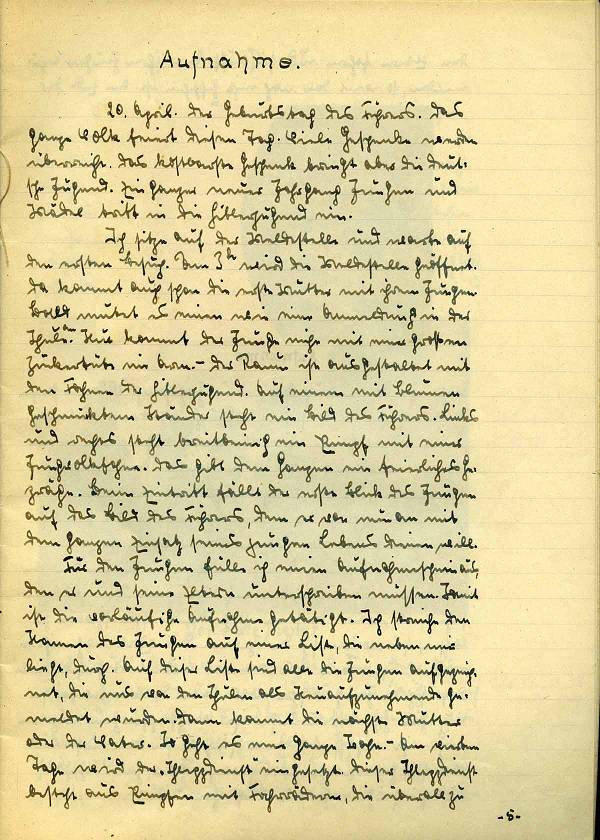 Aufnahme.
20. April. Der Geburtstag des Führers. Das
ganze Volk feiert diesen Tag. Viele Geschenke werden
überreicht. Das kostbarste Geschenk bringt aber die deut-
sche Jugend. Ein ganzer neuer Jahrgang Jungen und
Mädel tritt in die Hitlerjugend ein.
Ich sitze auf der Meldestelle und warte auf
den ersten Besuch. Um 3 h wird die Meldestelle geöffnet.
Da kommt auch schon die erste Mutter mit ihrem Jungen.
Bald mutet es einen wie eine Anmeldung in der
Schule an. Nur kommt der Junge nicht mit einer großen
Zuckertüte im Arm. - Der Raum ist ausgestaltet mit
den Fahnen der Hitlerjugend. Auf einem mit Blumen
geschmückten Ständer steht ein Bild des Führers. Links
und rechts steht breitbeinig ein Pimpf mit einer
Jungvolkfahne. Das gibt dem Ganzen ein feierliches Ge-
präge. Beim Eintritt fällt der erste Blick des Jungen
auf das Bild des Führers, dem er von nun an mit
dem ganzen Einsatz seines jungen Lebens dienen will.
Für den Jungen fülle ich einen Aufnahmeschein aus,
den er und seine Eltern unterschreiben müssen. Somit
ist die vorläufige Aufnahme getätigt. Ich streiche den
Namen des Jungen auf einer Liste, die neben mir
liegt, durch. Auf dieser Liste sind alle die Jungen aufgezeich-
net, die uns von den Schulen als Neuaufzunehmende ge-
meldet wurden. Dann kommt die nächste Mutter
oder der Vater. So geht es eine ganze Woche. - Am vierten
Tage wird der "Schleppdienst" eingesetzt. Dieser Schleppdienst
besteht aus Pimpfen mit Fahrrädern, die überall zu
-5-